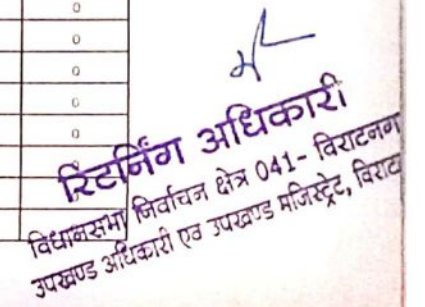 0
0
0
0
0
रिटर्निंग अधिकारी
विधानसभा निर्वाचन क्षेत्र 041- विराटनग
उपखण्ड अधिकारी एवं उपखण्ड मजिस्ट्रेट, विराट